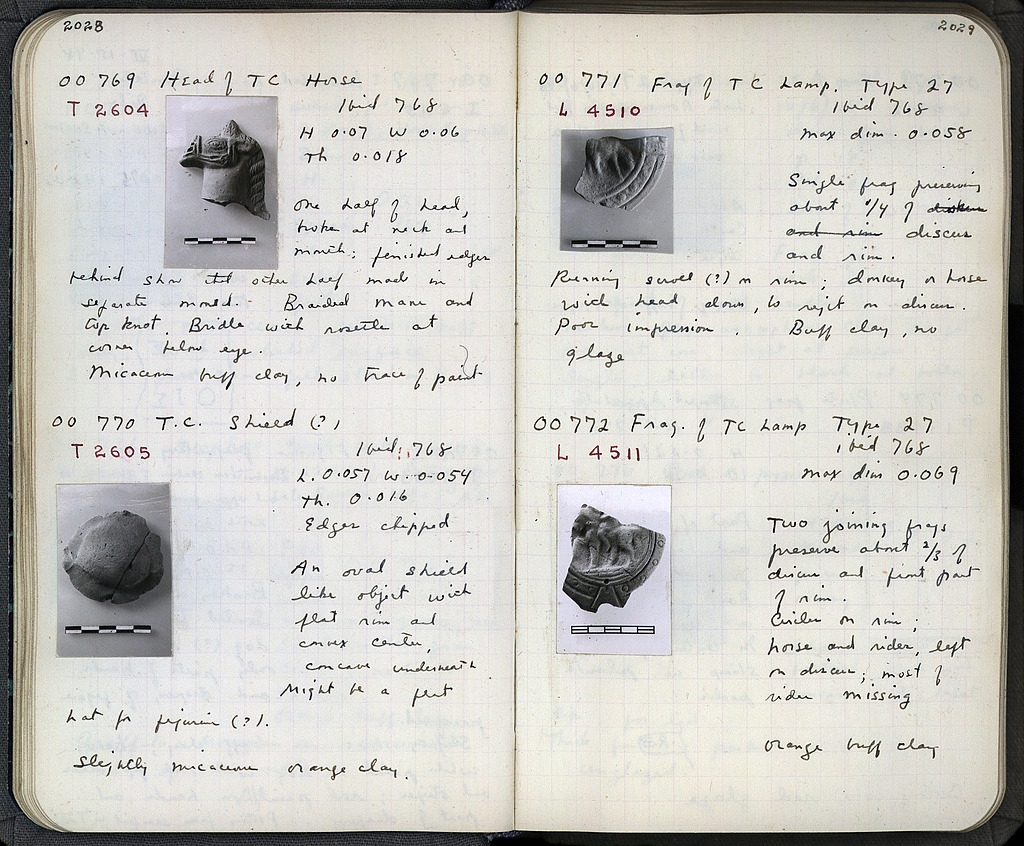 2028
OO 769 Head of TC Horse
T 2604
Ibid 768
H 0.07 W 0.06
Th 0.018
One half of head,
broken at neck and
mouth; finished edges
behind show that other half made in
separate mould. Braided mane and
top knot. Bridle with rosette at
corner below eye.
Micaceous buff clay, no trace of paint
OO 770 T.C. Shield (?)
T 2605
Ibid. 768
L. 0.057 W. 0.054
Th. 0.016
Edges chipped
An oval shield
like object with
flat rim and
convex center,
concave underneath
Might be a flat
hat for figurine (?).
Slightly micaceous orange clay.
2029
OO 771 Frag of TC Lamp. Type 27
L 4510
Ibid 768
Max dim. 0.058
Single frag preserving
about 1/4 of
and rim discus
and rim.
Running scroll (?) on rim; donkey or horse
with head down, to right on discus.
Poor impression. Buff clay, no
glaze
OO 772 Frag. of TC Lamp Type 27
L 4511
ibid 768
Max dim 0.069
Two joining frags
preserve about 2/3 of
discus and front part
of rim.
Circles on rim;
horse and rider, left
on discus; most of
rider missing
Orange buff clay